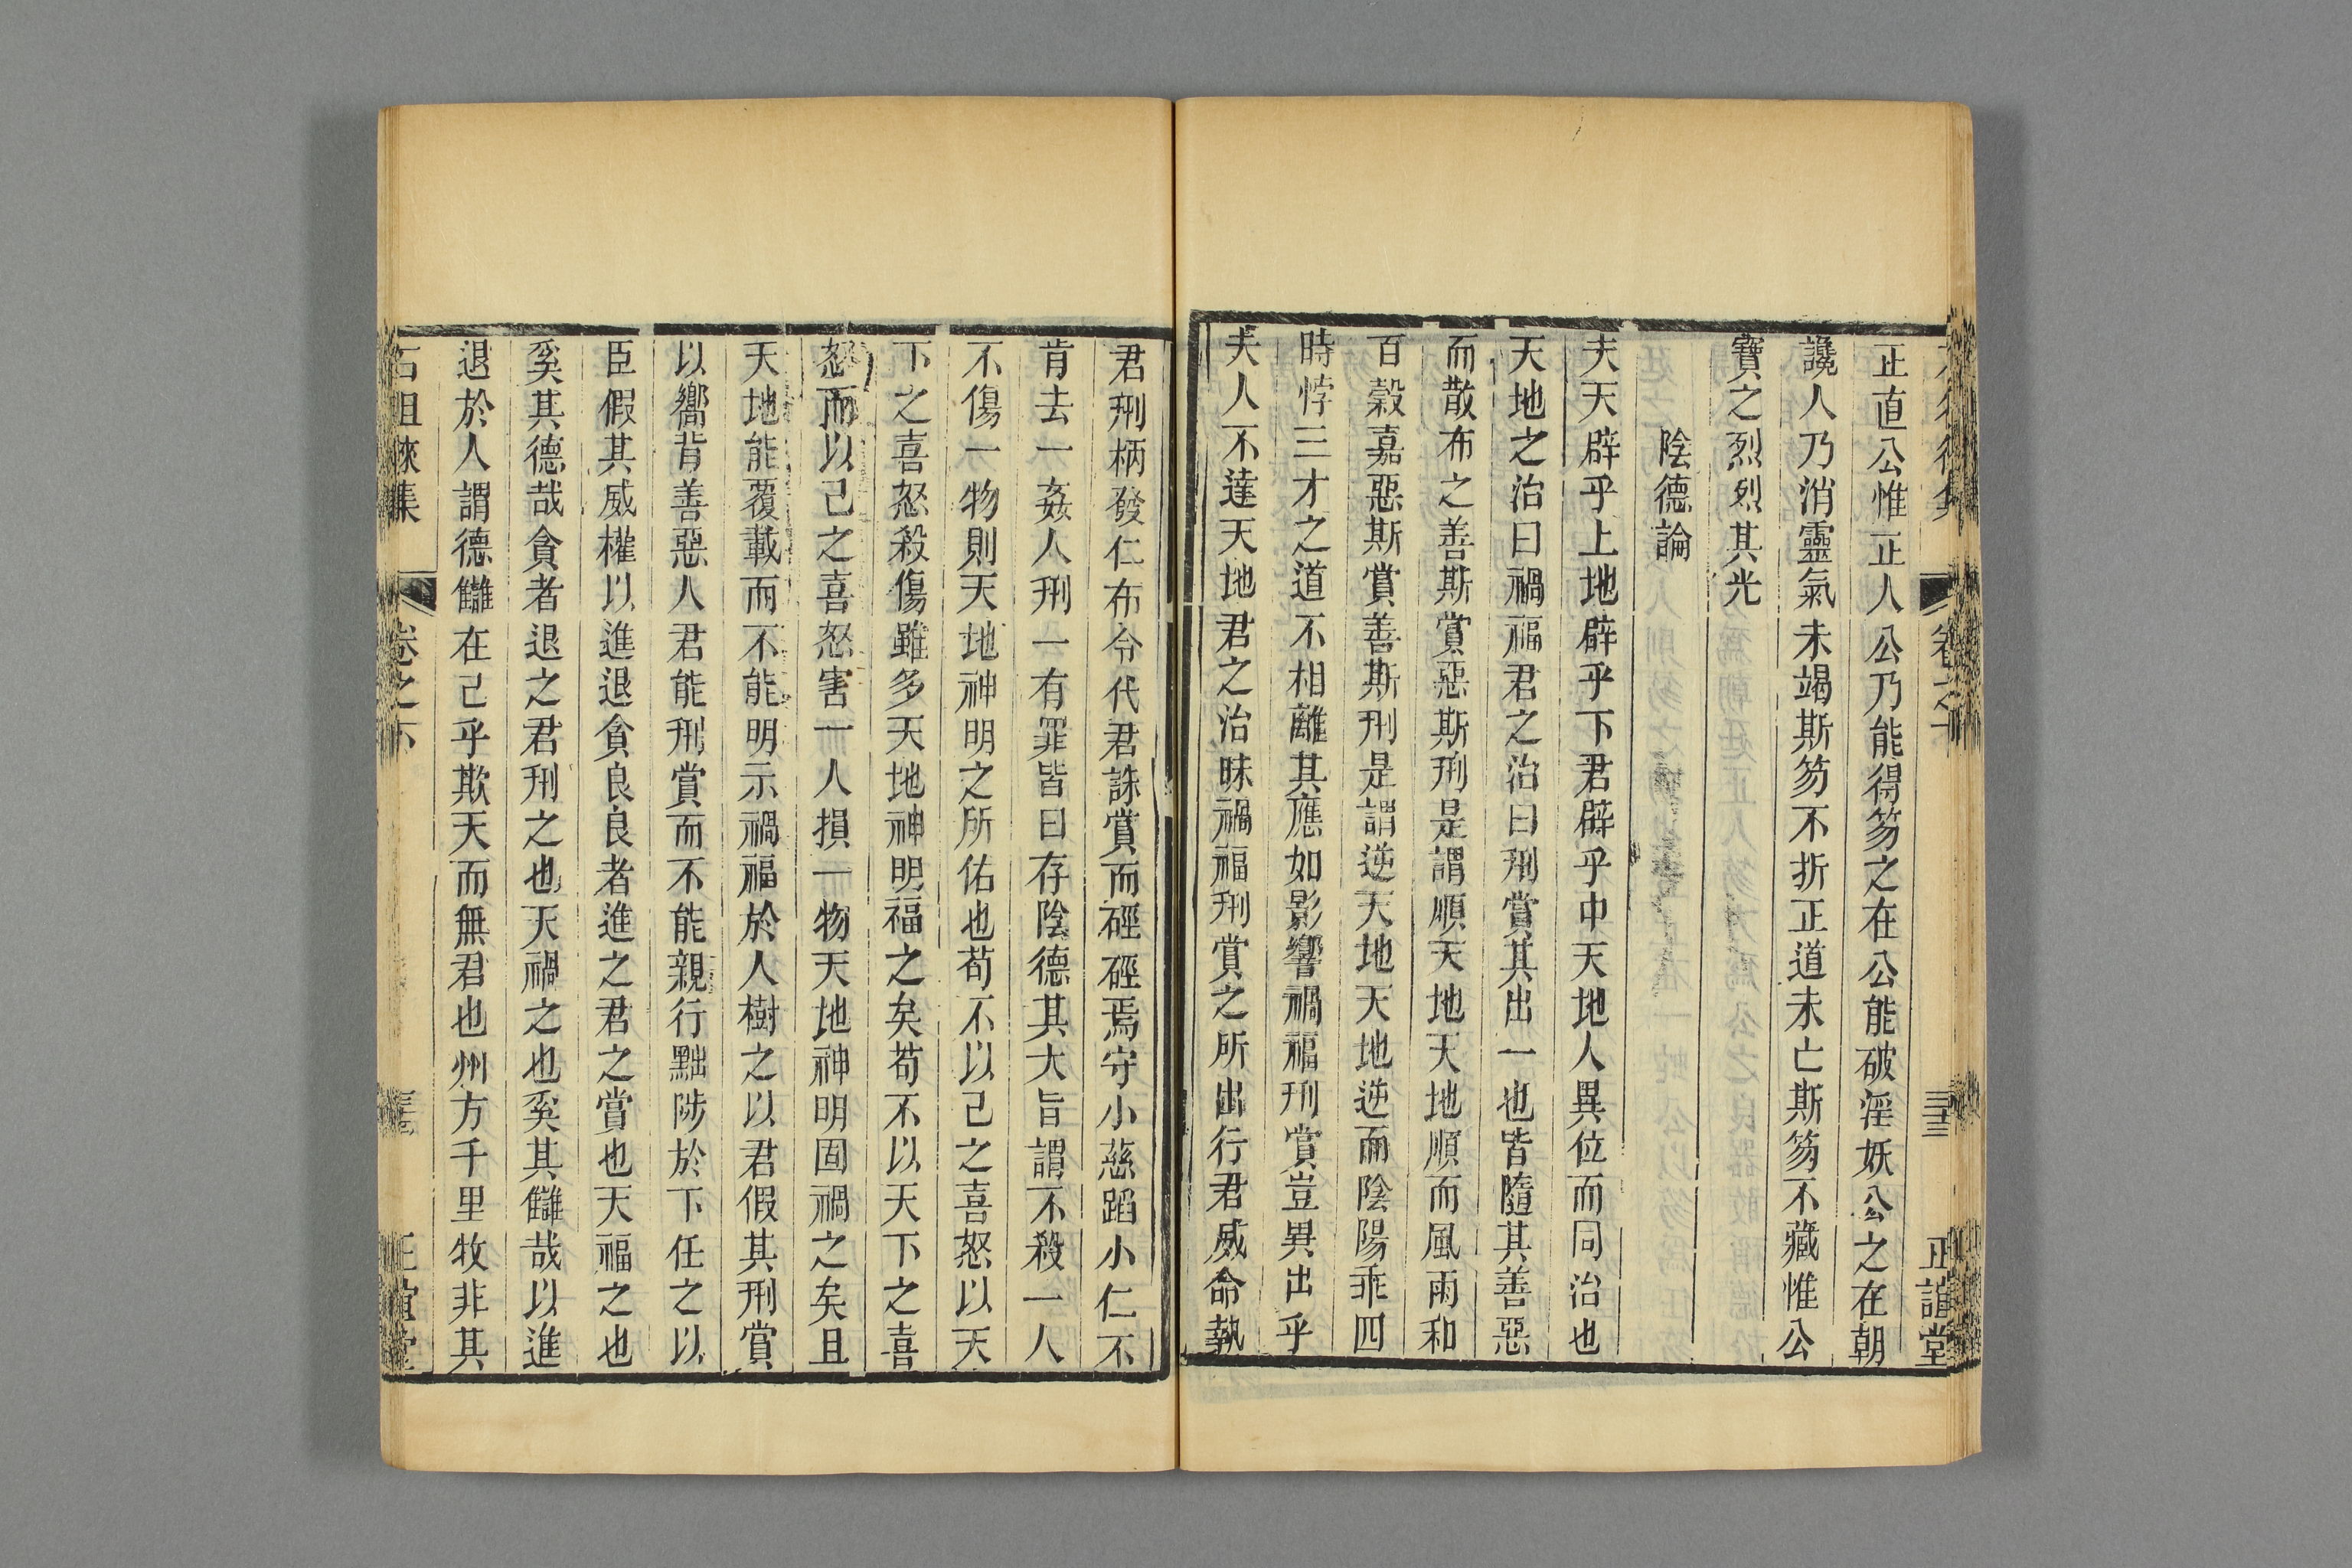 正直公惟正人公乃能得笏之在公能破淫妖公之在朝
讒人乃消靈氣未竭斯笏不折正道未亡斯笏不藏惟公
寶之烈烈其光
陰德論
夫天辟乎上地辟乎下君辟乎中天地人異位而同治也
天地之治曰禍福君之治曰刑賞其出一也皆隨其善惡
而散布之善斯賞惡斯刑是謂順天地天地順而風雨和
百穀嘉惡斯賞善斯刑是謂逆天地天地逆而陰陽乖四
時悖三才之道不相離其應如影響禍福刑賞豈異出乎
夫人不達天地君之治昧禍福刑賞之所出行君威命執
君刑柄發仁布令代君誅賞而硜硜焉守小慈蹈小仁不
肯去一姦人刑一有罪皆曰存陰德其大旨謂不殺一人
不傷一物則天地神明之所佑也苟不以己之喜怒以天
下之喜怒殺傷雖多天地神明福之矣苟不以天下之喜
怒而以己之喜怒害一人損一物天地神明固禍之矣且
天地能覆載而不能明示禍福於人樹之以君假其刑賞
以嚮背善惡人君能刑賞而不能親行黜陟於下任之以
臣假其威權以進退貪良良者進之君之賞也天福之也
奚其德哉貪者退之君刑之也天禍之也奚其讎哉以進
退於人謂德讎在己乎欺天而無君也州方千里牧非其
卷之下